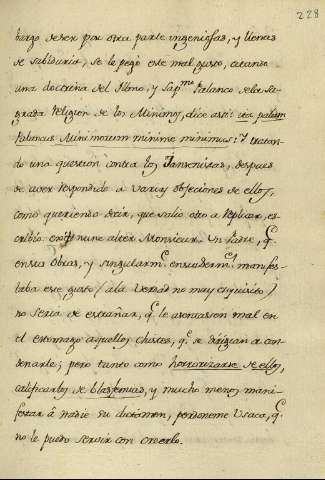 228
bargo de ser por otra parte ingeniosas, y llenas
de sabiduria, se le pegó este mal gusto, citando
una doctrina del Illmo, y Sapmo Palanco de la Sa-
grada Religion de los Minimos, dice assi: ita palam
Palancus Minimorum minime minimus: Y tratan-
do una question contra los Jansenistas, despues
de aver respondido a varias objeciones de ellos,
como queriendo decir, que salió otro a replicar, es-
cribio: exit nunc alter Monsieur. Un Padre, q.e
en sus obras, y singularm.te en su manifes-
taba este gusto (a la verdad no muy exquisito)
no seria de estrañar, q.e le assentassen mal en
el estomago aquellos chistes, q.e se dirigian a con-
denarle; pero tanto como horrorizarse de ellos,
calificarlos de blasfemias, y mucho menos mani-
festar à nadie su dictamen, perdoneme Usaca, q.e
no le puedo servir con creerlo.